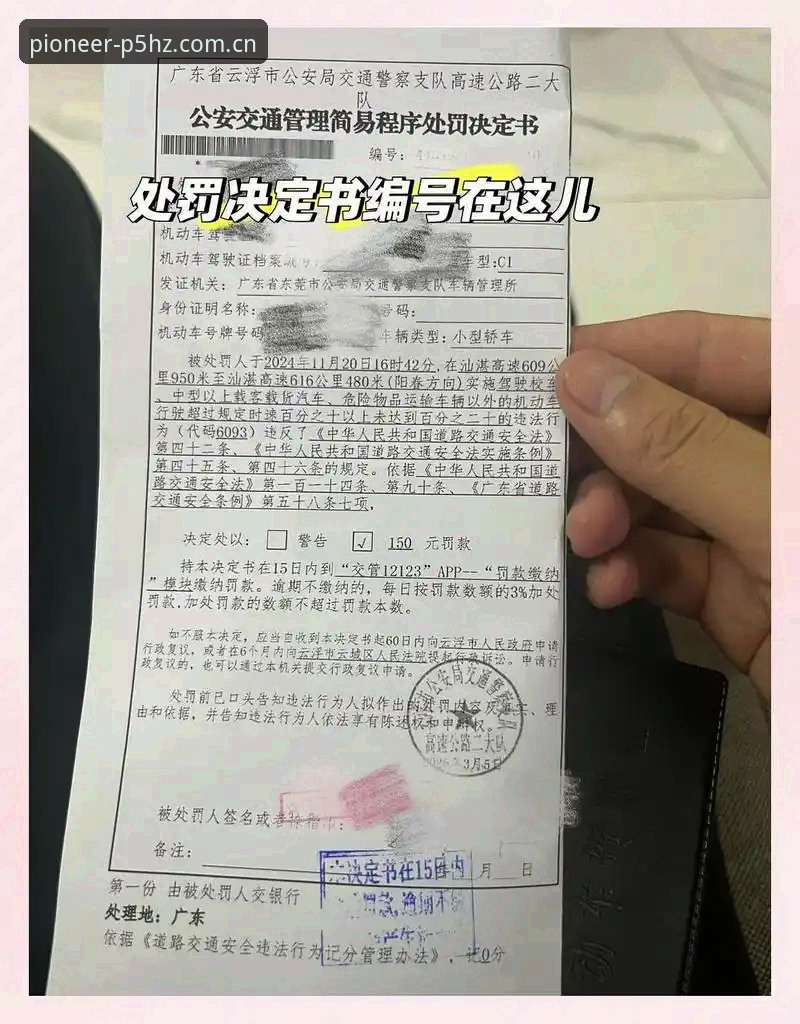 pioneer-p5hz.com.cn
广东省云浮市公安局交通警察支队高速公路二大
队
公安交通管理简易程序处罚决定书
编号:
处罚决定书编号在这儿
机动车驾
机动车驾驶证档案 车型:C1
发证机关: 广东省东莞市公安局交通警察支队车辆管理所
身份证明名称: 号码:
机动车号牌号码 车辆类型: 小型轿车
被处罚人于2024年11月20日16时42分,在汕湛高速609公
里950米至汕湛高速616公里480米(阳春方向)实施驾驶校车
、中型以上载客载货汽车、危险物品运输车辆以外的机动车
行驶超过规定时速百分之十以上未达到百分之二十的违法行
为 (代码6093) 违反了《中华人民共和国道路交通安全法》
第四十二条、《中华人民共和国道路交通安全法实施条例》
第四十五条、第四十六条的规定。依据《中华人民共和国道
路交通安全法》第一百一十四条、第九十条、《广东省道路
交通安全条例》第五十八条七项,
决定处以: □ 警告 ☑ 150 元罚款
持本决定书在15日内到“交管12123”APP--“罚款缴纳
”模块缴纳罚款。逾期不缴纳的, 每日按罚款数额的3%加处
罚款,加处罚款的数额不超过罚款本数。
如不服本决定, 应当自收到本决定书起60日内向云浮市人民政府申请
行政复议, 或者在6个月内向云浮市云城区人民法院提起行政诉讼。申请行
政复议的, 也可以通过本机关提交行政复议申请。
处罚前已口头告知违法行为人拟作出的处罚内容及事实、理
由和依据, 并告知违法行为人依法享有陈述权和申辩权。
市公安局交通警察支队
高速公路二大队
2025年3月5日
被处罚人签名或
备注:
月 日
决定书在15日内
罚款,逾期不
第一份 由被处罚人交银行
处理地: 广东
依据《道路交通安全违法行为记分管理办法》, 记0分
动车